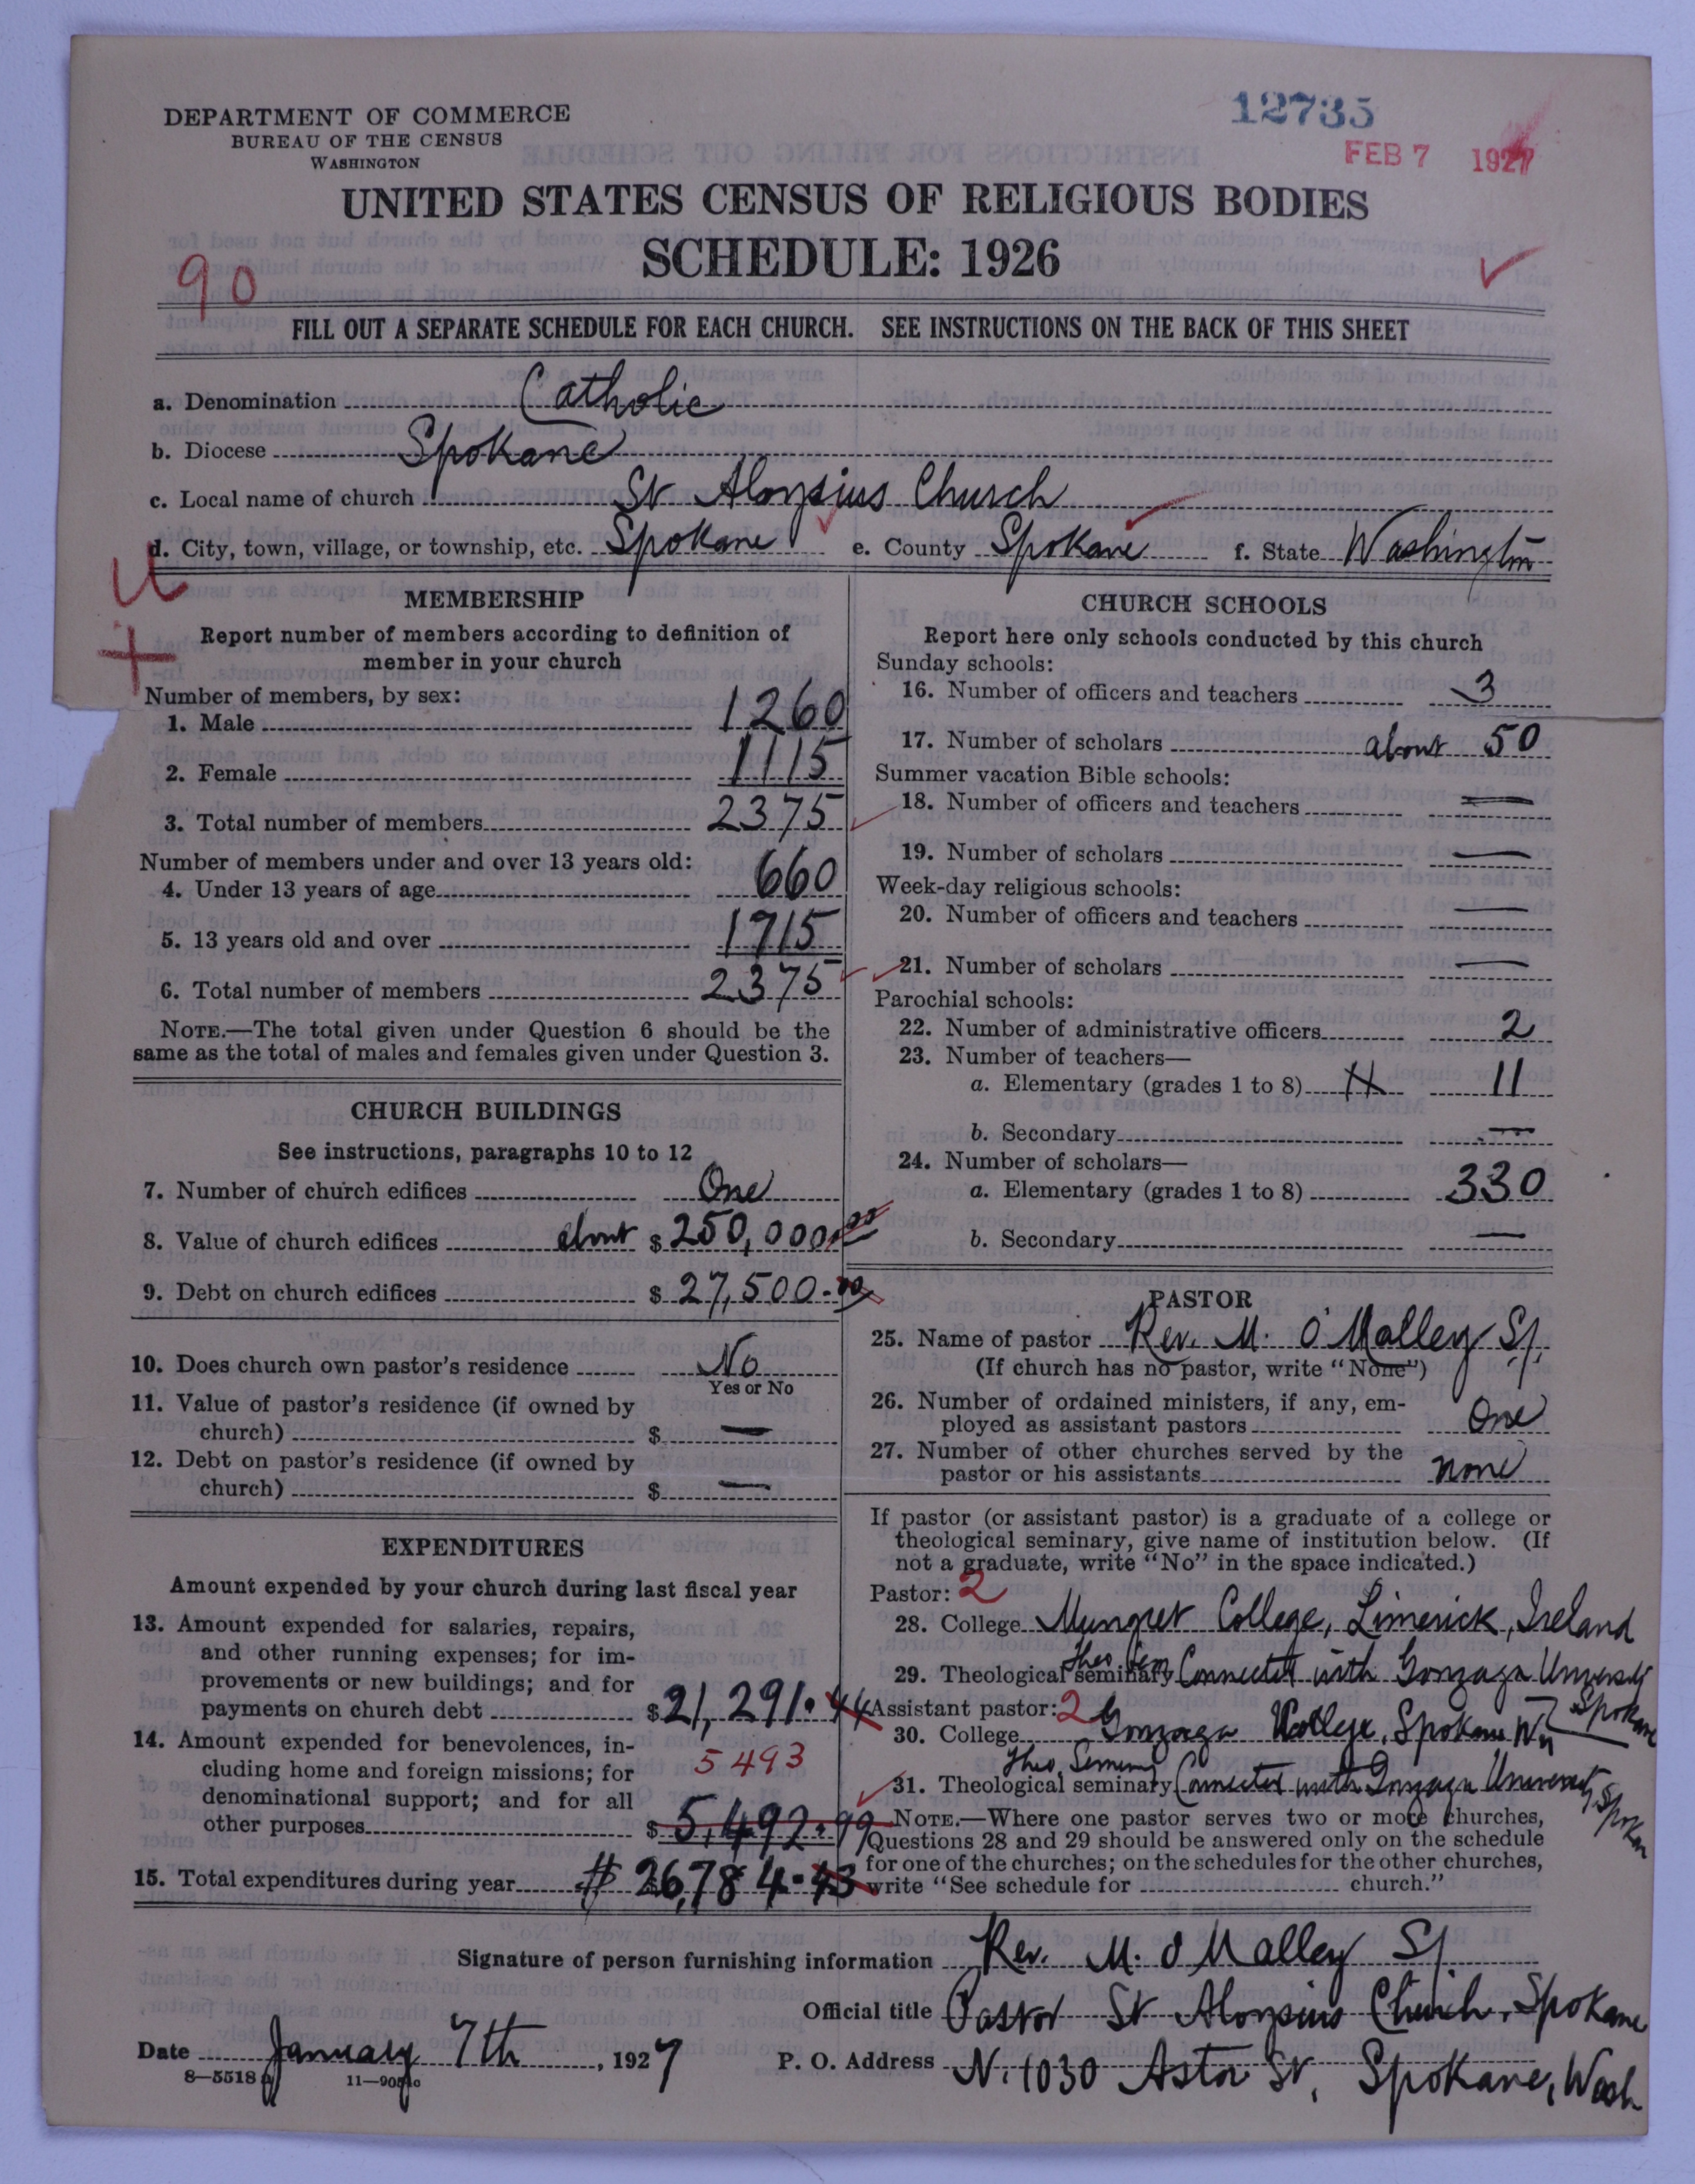 DEPARTMENT OF COMMERCE
BUREAU OF THE CENSUS
WASHINGTON
12735
FEB 7 1927
UNITED STATES CENSUS OF RELIGIOUS BODIES
SCHEDULE: 1926
90
FILL OUT A SEPARATE SCHEDULE FOR EACH CHURCH. SEE INSTRUCTIONS ON THE BACK OF THIS SHEET
a. Denomination Catholic
b. Diocese Spokane
c. Local name of church St Aloysius Church
d. City, town, village, or township, etc. Spokane e. County Spokane f. State Washington
MEMBERSHIP
Report number of members according to definition of
member in your church
Number of members, by sex:
1. Male 1260
2. Female 1115
3. Total number of members 2375
Number of members under and over 13 years old:
4. Under 13 years of age 660
5. 13 years old and over 1715
6. Total number of members 2375
NOTE.—The total given under Question 6 should be the
same as the total of males and females given under Question 3.
CHURCH BUILDINGS
See instructions, paragraphs 10 to 12
7. Number of church edifices One
8. Value of church edifices about $ 250,000.00
9. Debt on church edifices $ 27,500.00
10. Does church own pastor's residence No
Yes or No
11. Value of pastor's residence (if owned by
church) $ —
12. Debt on pastor's residence (if owned by
church) $ —
EXPENDITURES
Amount expended by your church during last fiscal year
13. Amount expended for salaries, repairs,
and other running expenses; for im-
provements or new buildings; and for
payments on church debt $ 21,291.44
14. Amount expended for benevolences, in-
cluding home and foreign missions; for 5493
denominational support; and for all
other purposes $ 5,492.99
15. Total expenditures during year # 26,784.43
CHURCH SCHOOLS
Report here only schools conducted by this church
Sunday schools:
16. Number of officers and teachers 3
17. Number of scholars about 50
Summer vacation Bible schools:
18. Number of officers and teachers —
19. Number of scholars —
Week-day religious schools:
20. Number of officers and teachers —
21. Number of scholars —
Parochial schools:
22. Number of administrative officers 2
23. Number of teachers—
a. Elementary (grades 1 to 8) 11 11
b. Secondary —
24. Number of scholars—
a. Elementary (grades 1 to 8) 330
b. Secondary —
PASTOR
25. Name of pastor Rev. M. O'Malley S.J.
(If church has no pastor, write "None")
26. Number of ordained ministers, if any, em-
ployed as assistant pastors One
27. Number of other churches served by the
pastor or his assistants none
If pastor (or assistant pastor) is a graduate of a college or
theological seminary, give name of institution below. (If
not a graduate, write "No" in the space indicated.)
Pastor: 2
28. College Mungret College, Limerick, Ireland
29. Theological seminary Theo. Sem Connected with Gonzaga University Spokane
Assistant pastor: 2
30. College Gonzaga College, Spokane Wn
31. Theological seminary Theo. Seminy Connected with Gonzaga University, Spokan
NOTE.—Where one pastor serves two or more churches,
Questions 28 and 29 should be answered only on the schedule
for one of the churches; on the schedules for the other churches,
write "See schedule for church."
Signature of person furnishing information Rev. M. O Malley SJ.
Official title Pastor St Aloysius Church, Spokane
Date January 7th, 1927 P. O. Address N. 1030 Astor St, Spokane, Wash
8—5518